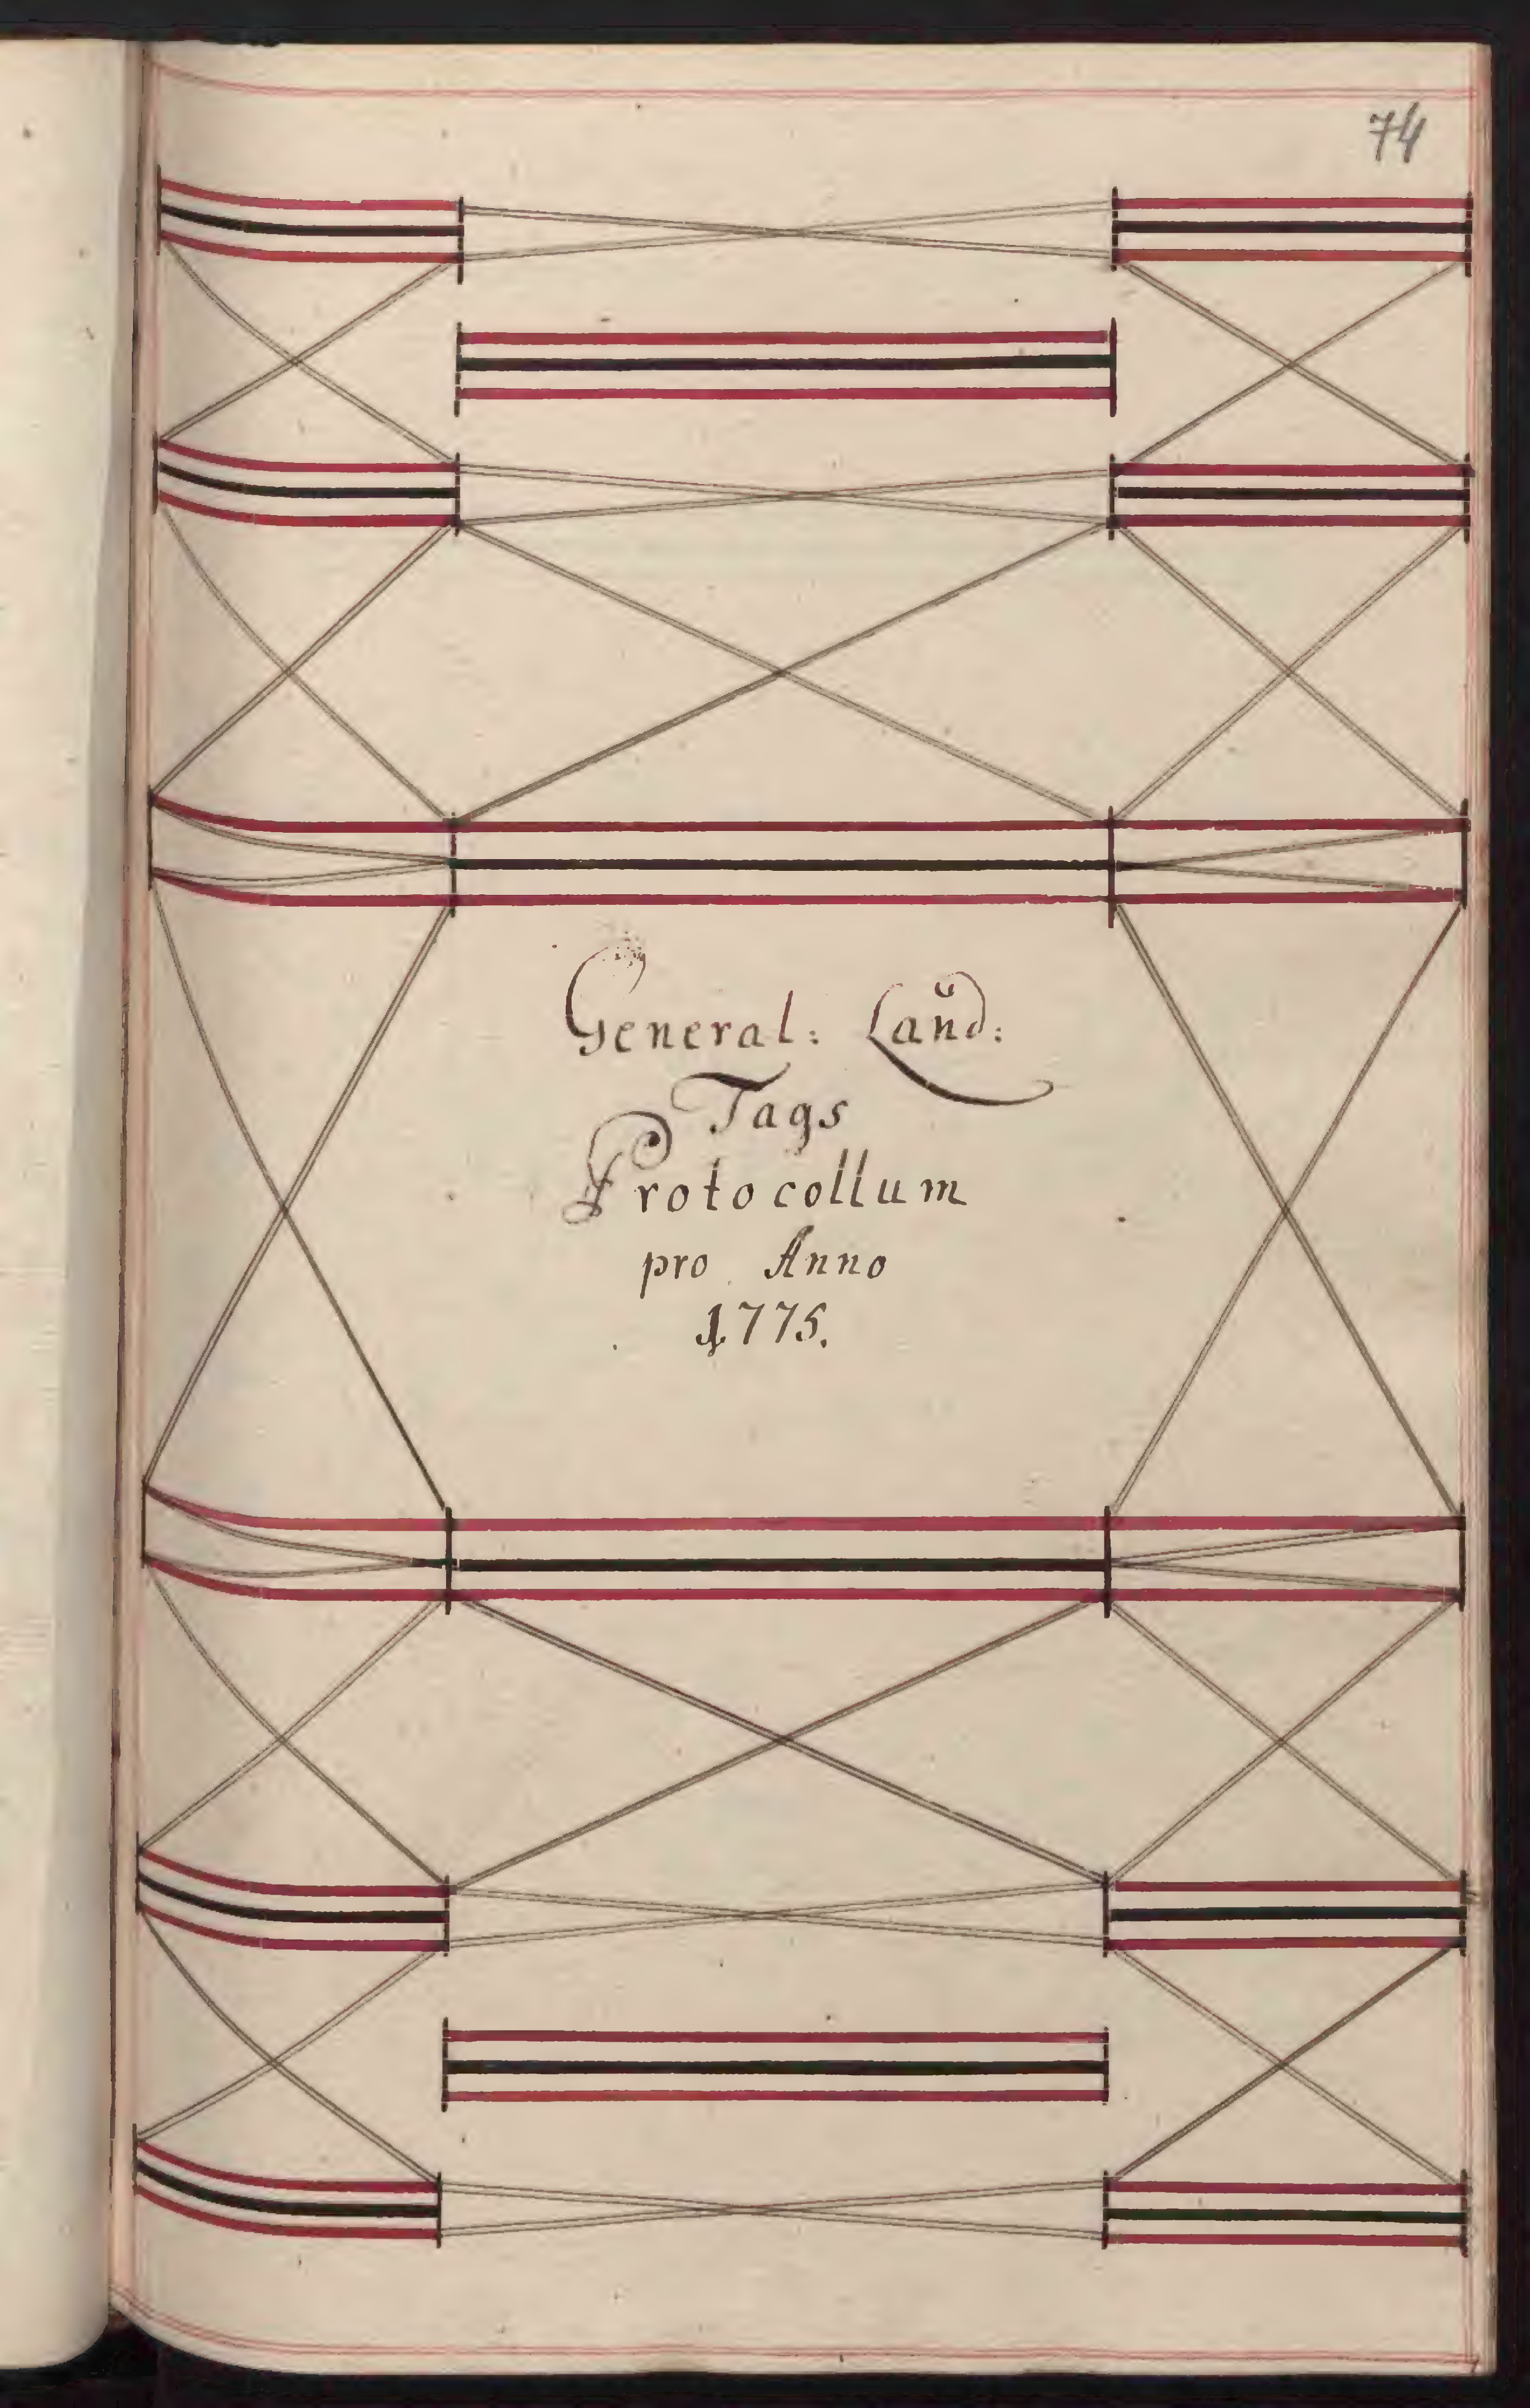 74
General: Land:
Tags
Protocollum
pro Anno
1775.